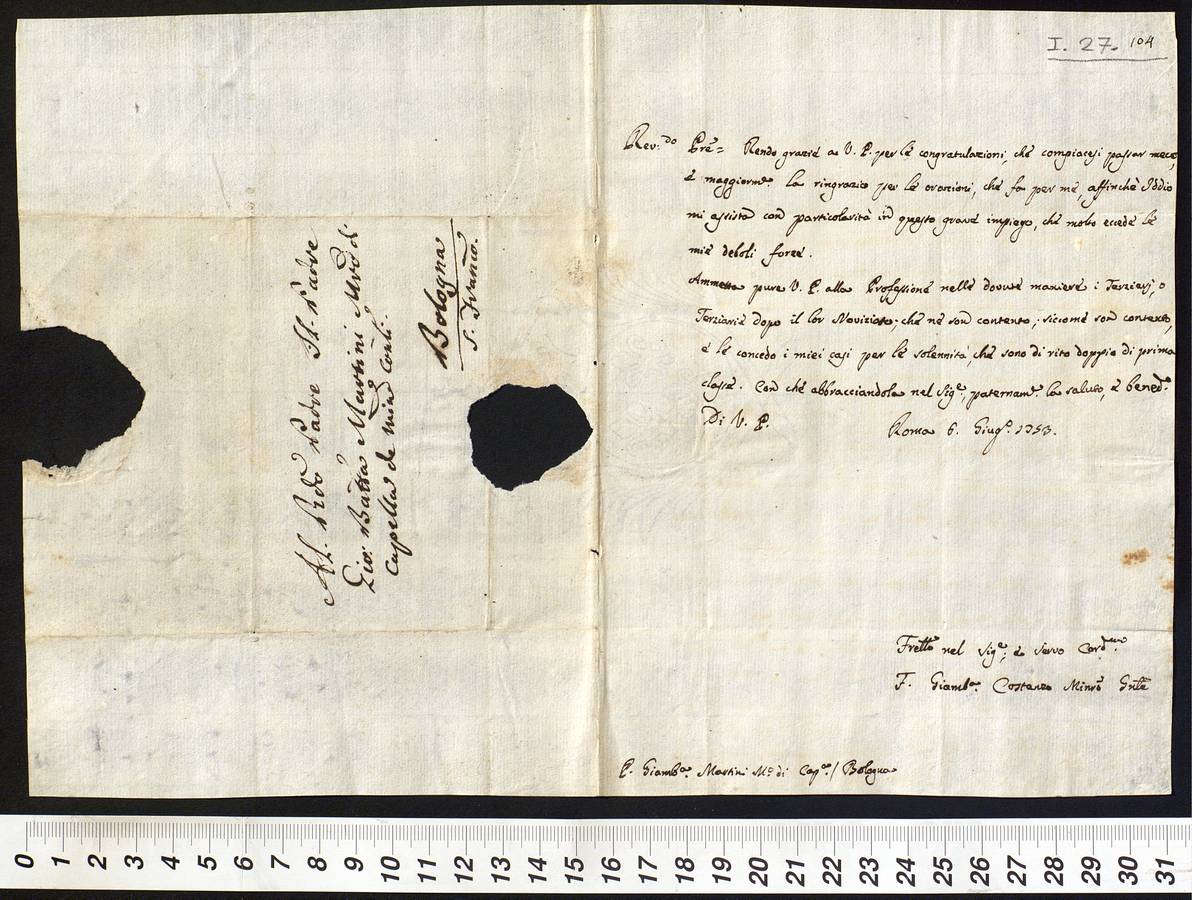 I. 27. 104
Rev.do Pre= Rendo grazie a V. P. per le congratulazioni, che compiacesi passar meco,
e maggiorme. la ringrazio per le orazioni, che fa per me, affinchè Iddio
mi assista con particolarità in questo grave impiego, che molto eccede le
mie deboli forze.
Ammetta pure V. P. alla Professione nelle dovute maniere i Terziarj, o
Terziarie dopo il lor Noviziato; che ne son contento; siccome son contento,
e le concedo i miei casi per le solennità, che sono di rito doppio di prima
classe. Con che abbracciandola nel Sige, paternamte. la saluto, e bened.o
Di V. P. Roma 6. Giugo. 1753.
Fretto nel Sige, e servo Cord.mo
F. Giamba. Costanzo Minro Gnle
P. Giamba. Martini Mo. di Capa./ Bologna
Al Rdo Padre Pl. Padre
Gio: Batta Martini Mro di
Capella de Minri Conli.
Bologna
S. Franco.
0 1 2 3 4 5 6 7 8 9 10 11 12 13 14 15 16 17 18 19 20 21 22 23 24 25 26 27 28 29 30 31